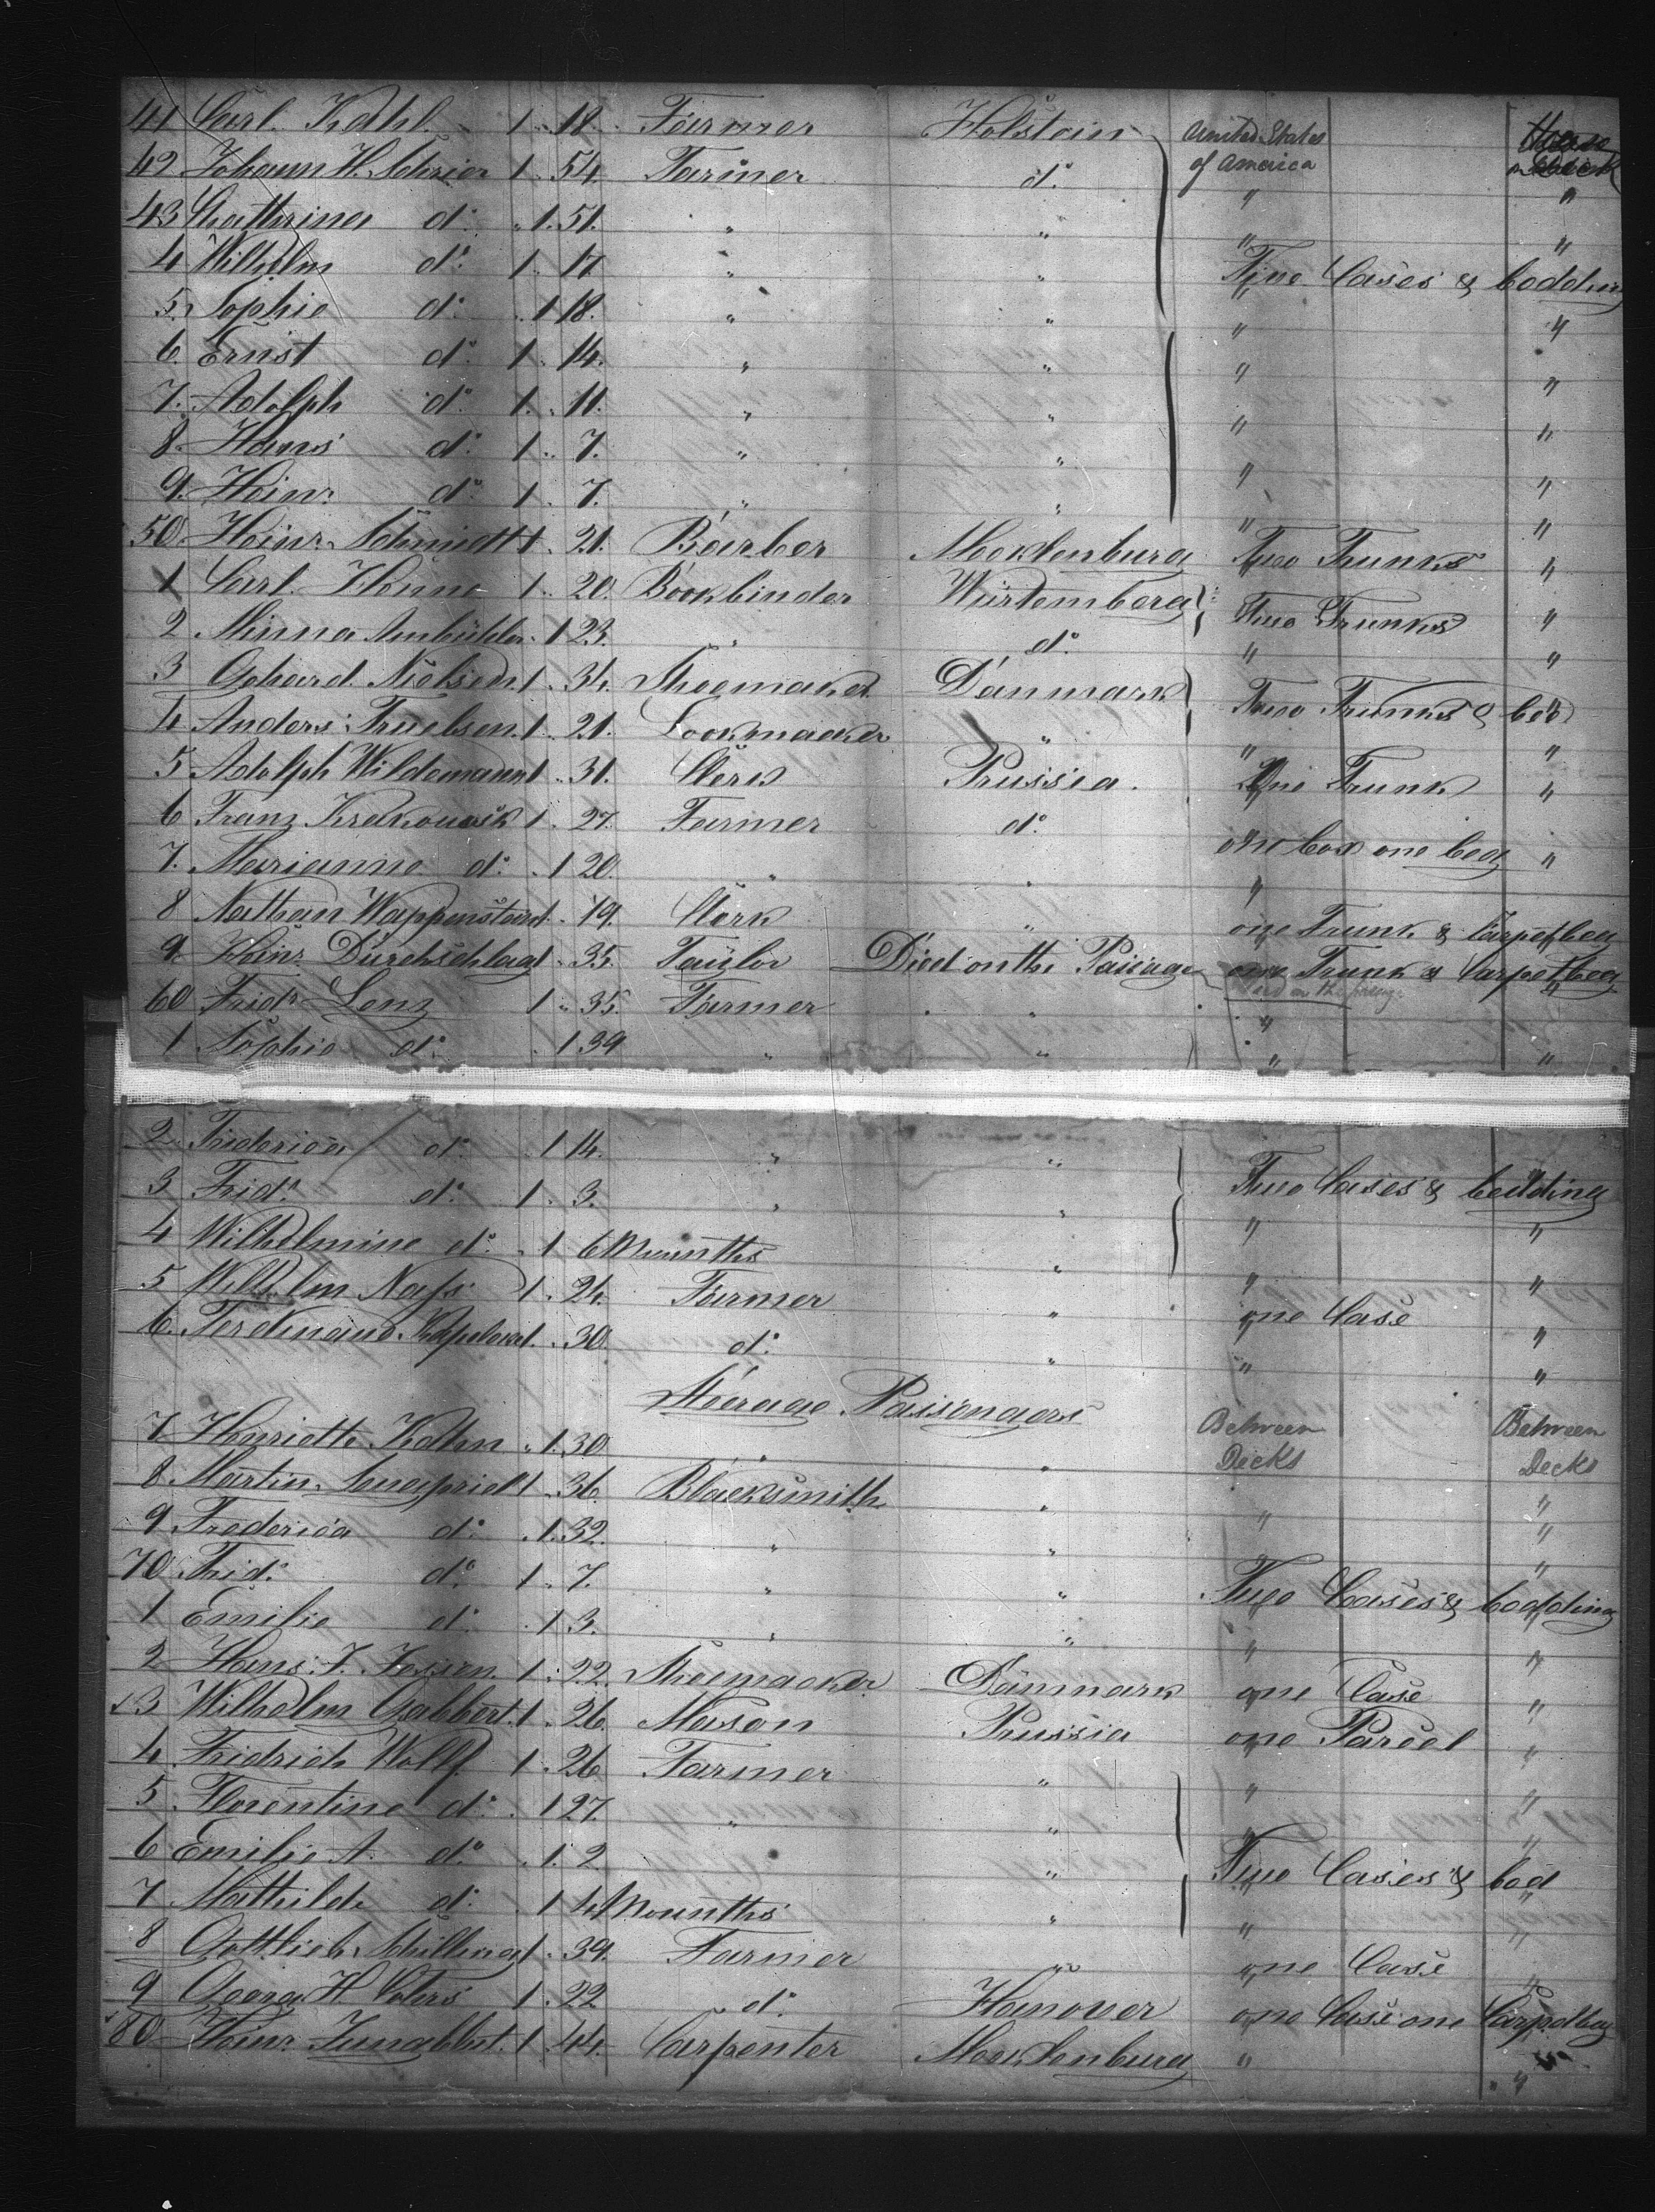 41 Carl Kahl 1 18. Farmer Holstein United States House
42 Johann H. Schrier 1 54. Farmer do of America on Deck
43 Chathrina do 1. 51. " " " "
4 Wilhelm do 1 17 " " " "
Two Cases & bedding
5. Sophie do 1 18. " " " "
6. Ernst do 1. 14. " " " "
7. Adolph do 1. 11. " " " "
8. Hans do 1. 7. " " " "
9. Heinr. do 1. 7. " " " "
50. Heinr. Schmidt 1. 21. Barber Mecklenburg Two Trunks "
1 Carl 1. 20. Bookbinder Würtemberg Two Trunks "
2 Minna 1 23. " do " "
3 Gehard Nielsen 1. 34. Shoemaker Danmark Two Trunks & bed "
4 Anders Truelsen 1. 21. Lookmacker " " "
5 Adolph Wildemann 1. 31. Clerk Prussia. One Trunk "
6 Franz Krakowsk 1. 27. Farmer do one box one bag "
7. Marianne do 1 20. " " " "
8 Nathan Wappenstein 1. 19. Clerk " one Trunk & Carpetbag
9. Heinr. Durchschlag 1. 35. Taylor Died on the Passage one Trunk & Carpetbag
died on the passage
60 Fridr. Lenz 1. 35. Farmer " " "
1 Sophie do 1 39 " " " "
2 Friderica do 1 14. " "
Two Cases & bedding
3 Fridr. do 1. 3. " " " "
4 Wilhelmine do 1 6 Mounths " " "
5 Wilhelm Nass 1. 24. Farmer " one Case "
6. Ferdinand 1. 30. do " " "
Steerage Passengers
7 Henriette Kahn 1. 30 " " Between Decks Between Decks
8. Martin 1. 36. Blacksmith " " "
9 Frederica do 1. 32. " " "
70 Frid. do 1. 7. " " Two Cases & bedding
1 Emilie do 1 3. " " " "
2 Hans J. Jessen 1. 22. Shoemacker Danmark one Case "
3 Wilhelm Gabbert 1. 26. Mason Prussia one Parcel "
4. Fridrich Wolff 1. 26 Farmer " " "
5 Florentine do 1 27. " " " "
6 Emilie A. do 1. 2 " Two Cases & bed
7 Mathilde do 1 4 Mounths " " "
8 Gottlieb Schilling 1. 39. Farmer " one Case "
9 Georg H. 1. 22 do Hanover one Case one Carpetbag
80 Heinr. 1. 44. Carpenter Mecklenburg " "